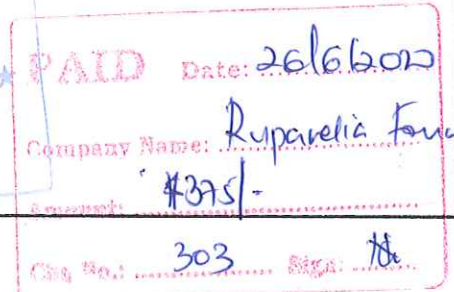 PAID Date: 26/6/2020
Company Name: Ruparelia Foun
Amount: $375/-
Chq No.: 303 Sign: